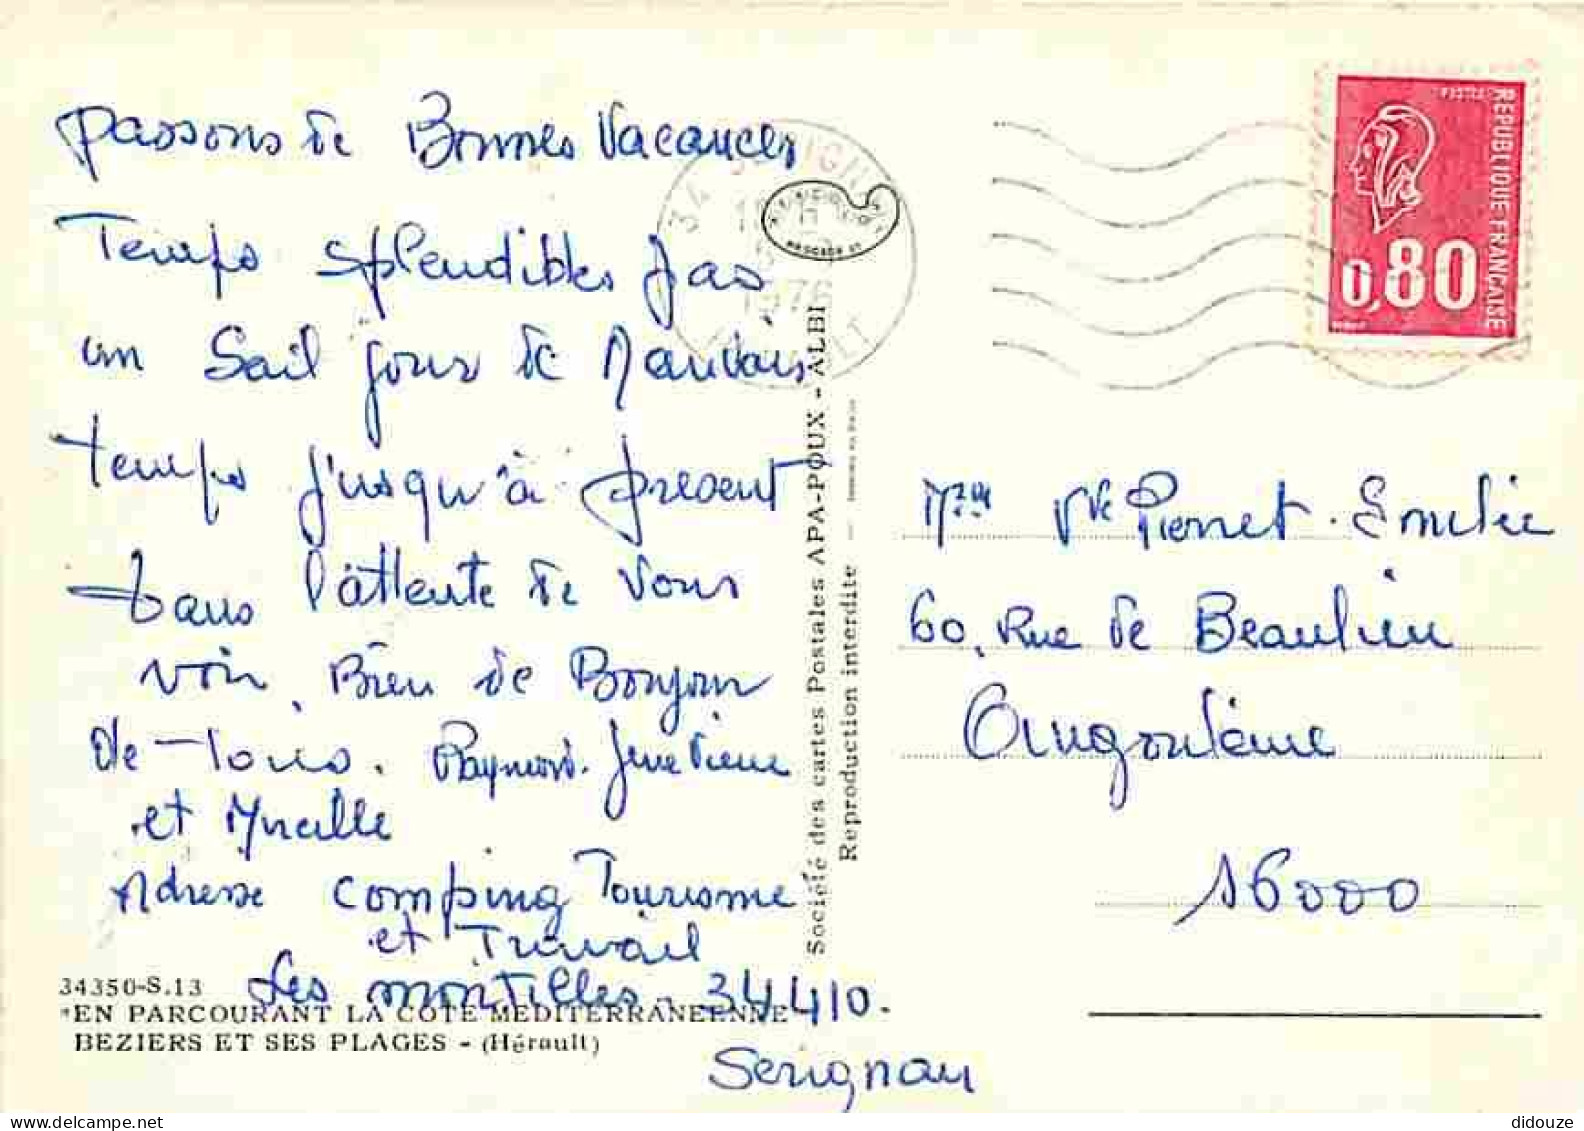 passons de Bonnes Vacances
Temps splendibles pas
un Sail jour de Mauvais
temps jusqu'à present
dans l'attente de vous
voir. Bien de Bonjour
de-tous. Raymond. Genevieve
et Mireille
Adresse Comping Tourisme
et Travail
Les montilles. 34410.
Serignan
34350-S.13
"EN PARCOURANT LA COTE MEDITERRANEENNE
BEZIERS ET SES PLAGES - (Hérault)
Société des cartes Postales APA-POUX - ALBI
Reproduction interdite —
1976
POSTES
REPUBLIQUE FRANÇAISE
0,80
Mme Vve Pierret. Emilie
60, Rue de Beaulieu
Angoulême
16000
didouze